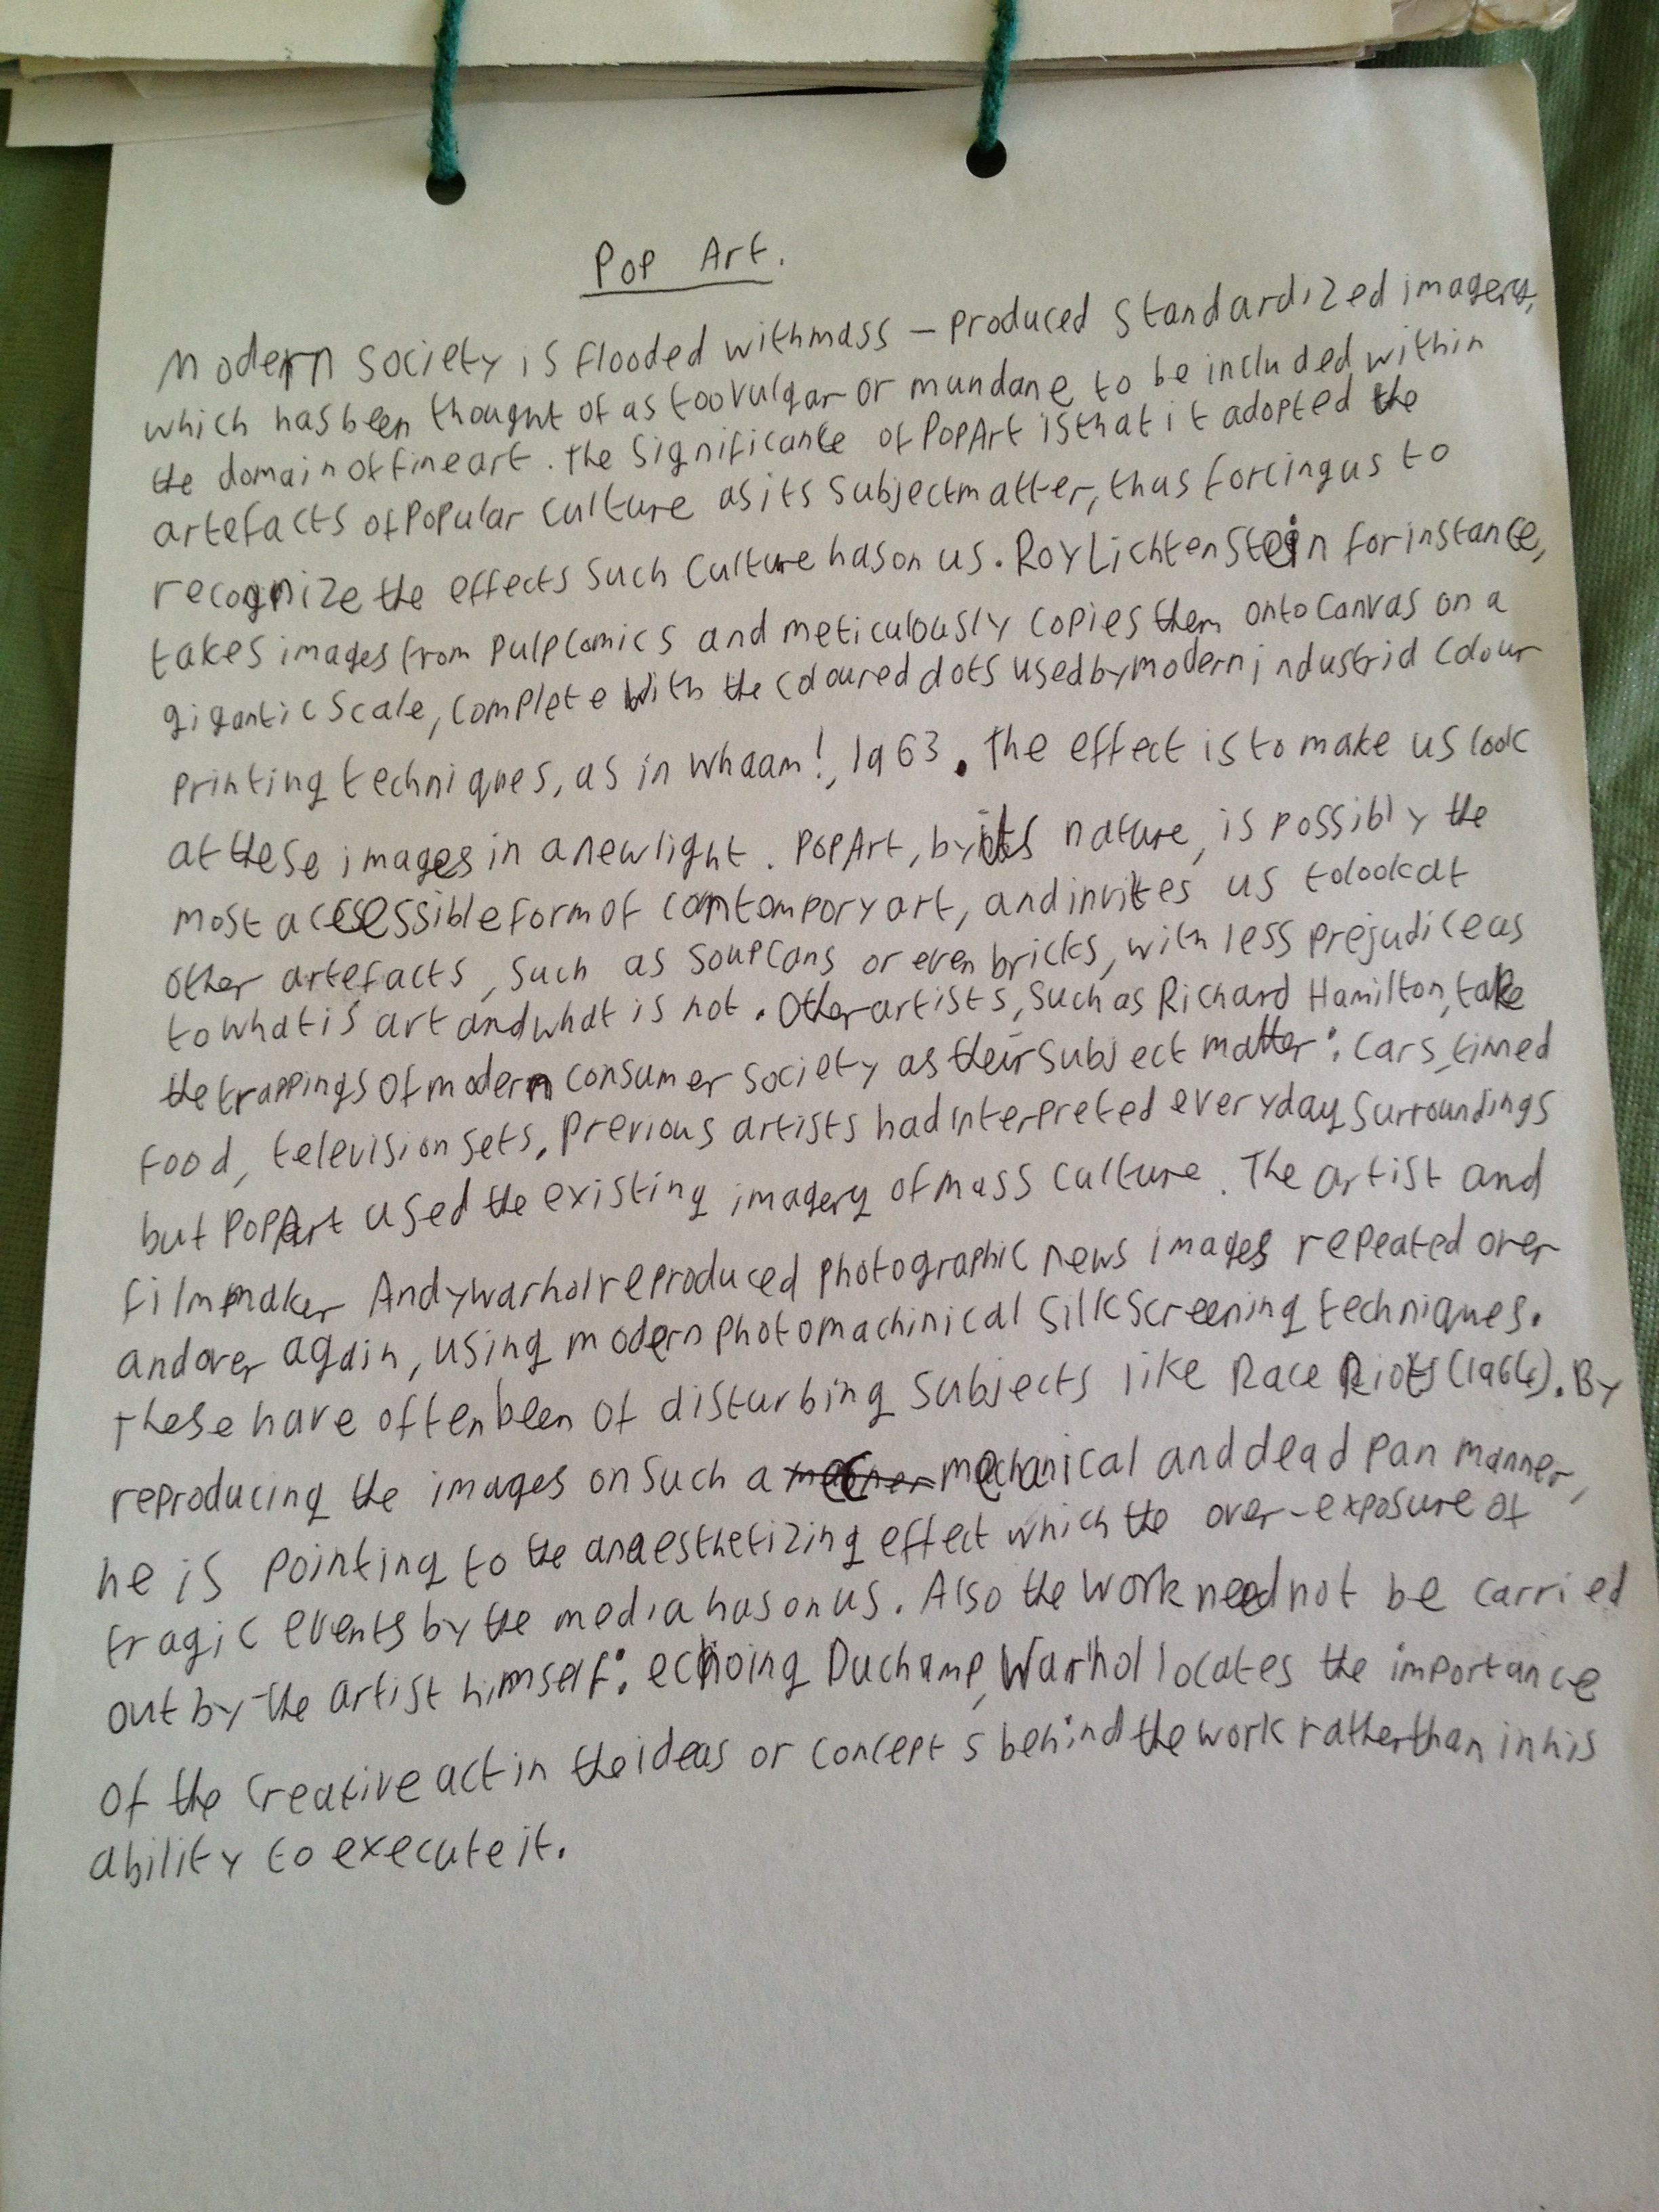 Pop Art.
Modern society is flooded with mass - produced standardized imagery,
which has been thought of as too vulgar or mundane to be included within
the domain of fine art. The significance of Pop Art is that it adopted the
artefacts of popular culture as its subject matter, thus forcing us to
recognize the effects such culture has on us. Roy Lichtenstein for instance,
takes images from pulp comics and meticulously copies them onto canvas on a
gigantic scale, complete with the coloured dots used by modern industrial colour
printing techniques, as in Whaam!, 1963. The effect is to make us look
at these images in a new light. Pop Art, by its nature, is possibly the
most accessible form of contempory art, and invites us to look at
other artefacts, such as soup cans or even bricks, with less prejudice as
to what is art and what is not. Other artists, such as Richard Hamilton, take
the trappings of modern consumer society as their subject matter: cars, tinned
food, television sets. Previous artists had interpreted everyday surroundings
but Pop Art used the existing imagery of mass culture. The artist and
filmmaker Andy Warhol reproduced photographic news images repeated over
and over again, using modern photomachinical silkscreening techniques.
These have often been of disturbing subjects like Race Riots (1964). By
reproducing the images on such a mechanical and dead pan manner,
he is pointing to the anaesthetizing effect which the over-exposure of
tragic events by the media has on us. Also the work need not be carried
out by the artist himself: echoing Duchamp, Warhol locates the importance
of the creative act in the ideas or concepts behind the work rather than in his
ability to execute it.